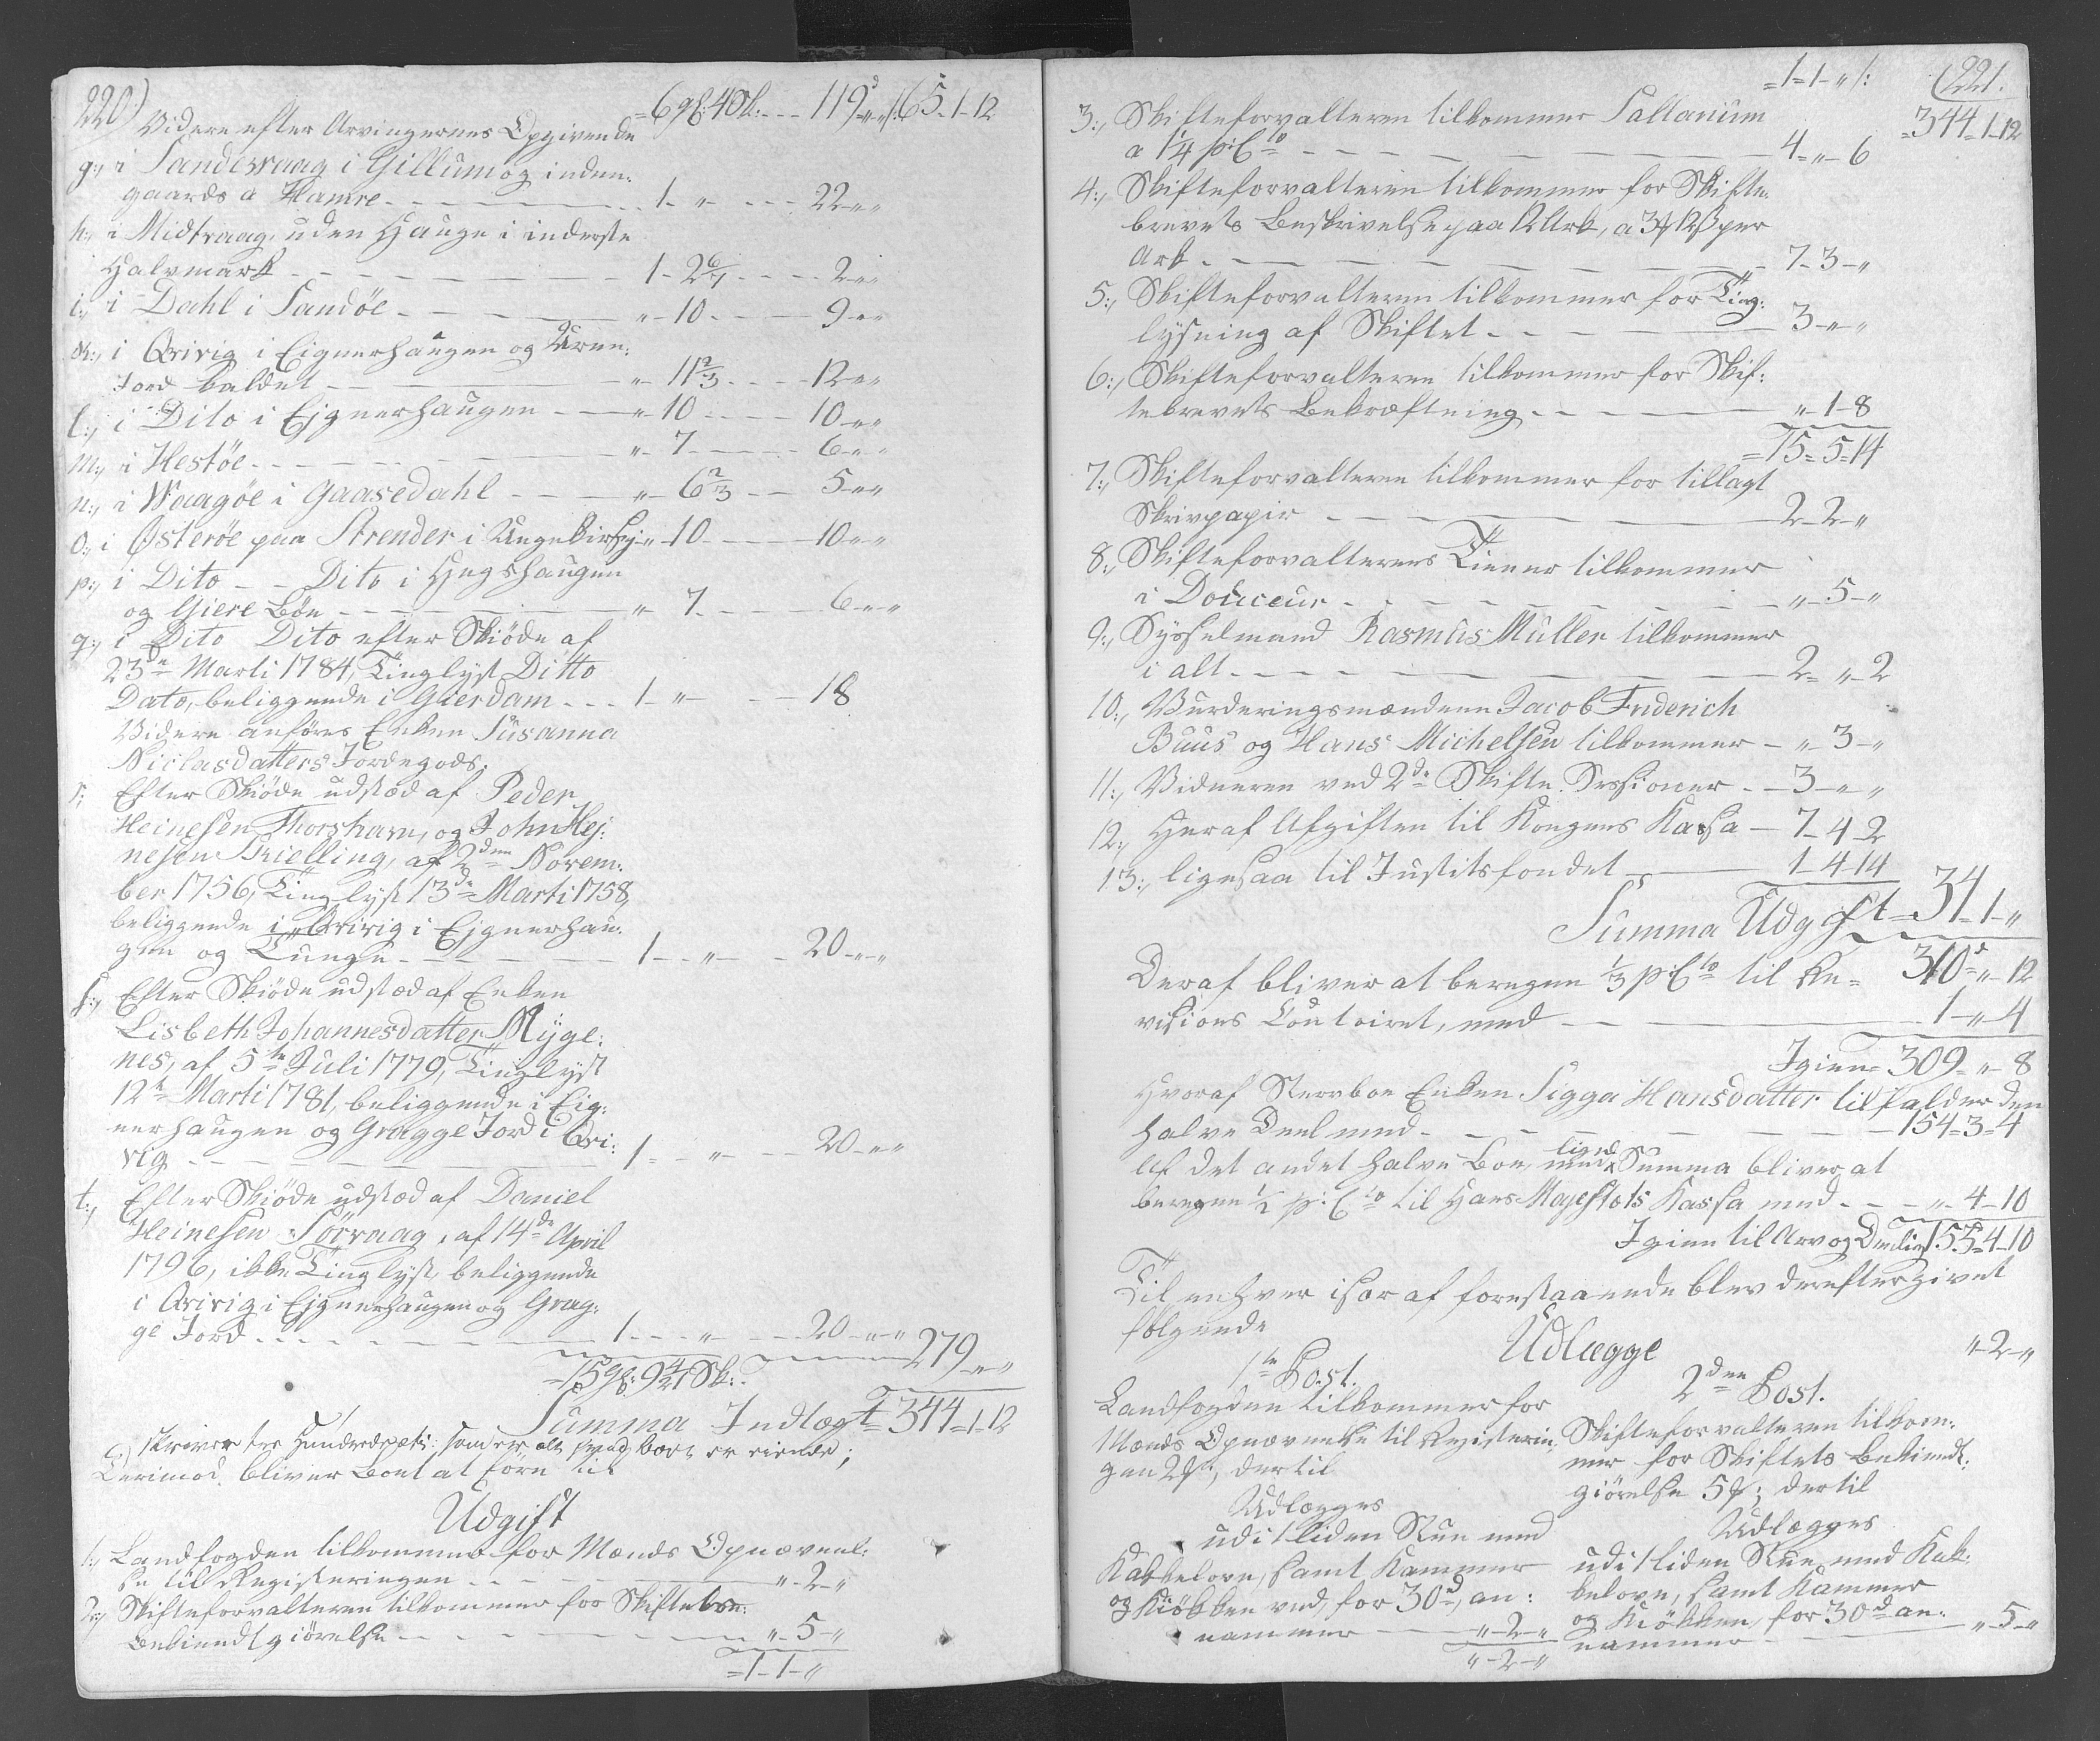 220)
=6 gl: 4 Sk: - - - 119d „ „ /: 65-1-12
Videre efter Arvingernes Opgivende
g:, i Sandevaag i Gillumog inden:
gaards a Hamre - - - 1 - „ - - - 22 - „ „
h:, i Midtvaag, uden Hauge i inderste
Halvmark - - - 1 - 2 6/7 - - - 2 - „ „
i:, i Dahl i Sandöe - - - „ - 10 - - - 9 - „ „
k:, i Qvivig i Eignerhaugen og
Jord kaldet - - - „ - 11 2/3 - - - 12 - „ „
l:, i Dito i Ejgnerhaugen - - - „ - 10 - - - 10 - „ „
m:, i Hestöe - - - „ - 7 - - - 6 - „ „
n:, i Waagöe i Gaasedahl - - - „ - 6 2/3 - - - 5 - „ „
o:, i Østeröe paa Strender i - „ - 10 - - - 10 - „ „
p:, i Dito - - Dito i Hegshaugen
og Giere Böe - - - „ - 7 - - - 6 - „ „
q:, i Dito Dito efter Skiöde af
23de Marti 1784, Tinglyst Ditto
Dato, beliggende i Gierdam - - - 1 - „ - - - 18
Videre anföres Enken Susanna
Niclasdatters Jordegods.
r:, Efter Skiöde udstæd af Peder
Heinesen Thorshavn, og John Hej:
nesen Kielling, af 2den Novem:
ber 1756, Tinglyst 13de Marti 1758,
beliggende i Qvivig i Ejgnerhau:
gen og Tunge - - - 1 - „ - 20 - „ „
s:, Efter Skiöde udstæd af Enken
Lisbeth Johannesdatter Myge:
nes, af 5te Juli 1779, Tinglyst
12te Marti 1781, beliggende i Eig:
nerhaugen og Gragge Jord i Qvi:
vig - - - 1 - „ - - 20 - „ „
t:, Efter Skiöde udstæd af Daniel
Heinesen Sörvaag, af 14de April
1796, ikke Tinglyst, beliggende
i Qvivig i Ejgnerhaugen og Grag:
ge Jord - - - 1 - „ - - 20 - „ „ 279 - „ „
=15 gl: 9 4/21 Sk:
Summa Indtægt = 344=1-12
skriver tre Hundrede som er alt hvad Boet er eiende;
Derimod bliver Boet at före til
Udgift
1:, Landfogden tilkommer for Mænds Opnævnel:
se til Registeringen - - - „ - 2 - „
2:, Skifteforvalteren tilkommer for Skiftets
Bekiendtgiörelse - - - „ - 5 - „
= 1 - 1 - „
(221.
=1=1-„ /:
=344=1-12
3:, Skifteforvalteren tilkommer Sallarium
a 1/4 p:Cto - - - 4 = „ - 6
4:, Skifteforvalteren tilkommer for Skifte:
brevets Beskrivelse paa 12 Ark, a 3 12ß per
Ark - - - 7-3-„
5:, Skifteforvalteren tilkommer for Ting:
lysning af Skiftet - - - 3-„-„
6:, Skifteforvalteren tilkommer for Skif:
tebrevets Bekræftning - - - „-1-8
=15=5=14
7:, Skifteforvalteren tilkommer for tillagt
Skrivpapir - - - 2-2-„
8:, Skifteforvalterens Tiener tilkommer
i Douceur - - - „-5-„
9:, Sysselmand Rasmus Müller tilkommer
i alt - - - 2=„-2
10:, Vurderingsmændene Jacob Friderich
Buus og Hans Michelsen tilkommer - „-3-„
11:, Vidneren ved 2de Skifte Sessioner - - 3-„-„
12:, Heraf Afgiften til Kongens Kassa - 7-4-2
13:, ligesaa til Justitsfondet - - - 1-4-14
Summa Udgift = 34=1-„
310d=„-12
Deraf bliver at beregne 1/3 p:Cto til Re=
visions Contoiret, med - - - 1-„-4
Igien = 309=„-8
Hvoraf Stervboe Enken Sigga Hansdatter tilfalder den
halve Deel med - - - 154=3=4
Af det andet halve Boe, med lige Summa bliver at
beregne 1/2 p:Cto til Hans Majestæts Kassa med - - - „-4-10
Igien til Arv og Deeling 153=4-10
Til enhver især af forestaaende blev derefter givet
fölgende
Udlægge
„-2-„
1te Post.
Landfogden tilkommer for
Mænds Opnævnelse til Registerin,
gen 2, dertil
Udlægges
udi 1 liden Stue med
Kakkelovn, samt Kammer
og Kiökken ved, for 30d, an:
nammer - - - „-2-„
„-2-„
2den Post.
Skifteforvalteren tilkom:
mer for Skiftets Bekiendt:
giörelse 5; dertil
Udlægges
udi 1 liden Stue, med Kak:
kelovn, samt Kammer
og Kiökken, for 30d an:
nammer - - - „-5-„